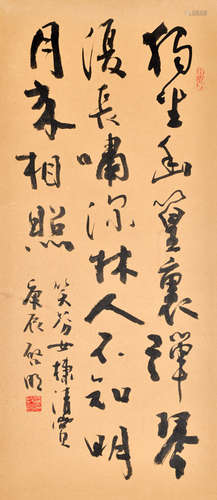 獨坐幽篁裏彈琴
復長嘯深林人不知明
月來相照
笑芬女棣清賞
庚辰 啓明